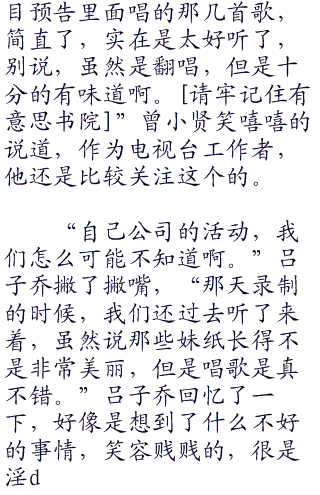 目预告里面唱的那几首歌，
简直了，实在是太好听了，
别说，虽然是翻唱，但是十
分的有味道啊。[请牢记住有
意思书院]”曾小贤笑嘻嘻的
说道，作为电视台工作者，
他还是比较关注这个的。
“自己公司的活动，我
们怎么可能不知道啊。”吕
子乔撇了撇嘴，“那天录制
的时候，我们还过去听了来
着，虽然说那些妹纸长得不
是非常美丽，但是唱歌是真
不错。”吕子乔回忆了一
下，好像是想到了什么不好
的事情，笑容贱贱的，很是
淫d